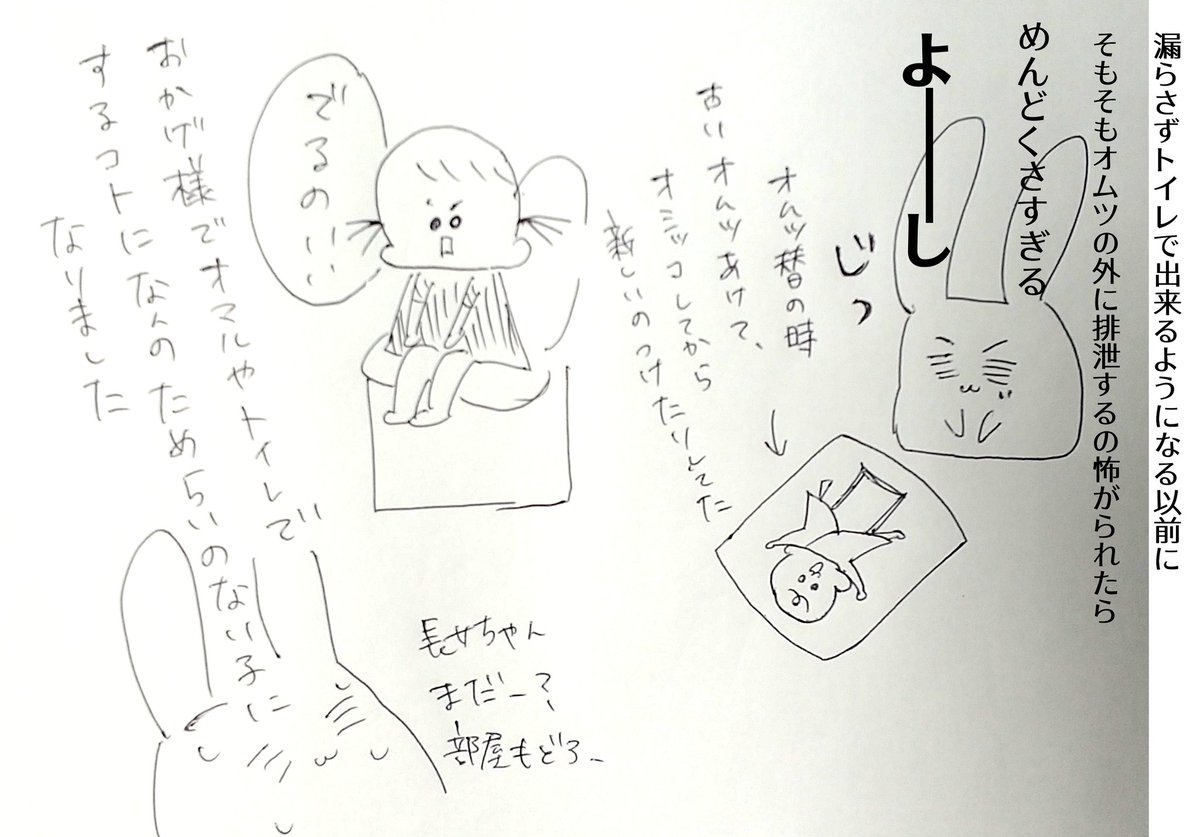 漏らさずトイレで出来るようになる以前に
そもそもオムツの外に排泄するの怖がられたら
めんどくさすぎる
よーし
じっ
オムツ替の時
古いオムツあけて、
オシッコしてから
新しいのつけたりしてた
でるのいい
おかげ様でオマルやトイレで
するコトになんのためらいのない子に
なりました
長女ちゃん
まだー?
部屋もどろー